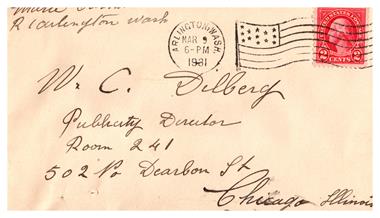 R 1 arlington Wash
ARLINGTON, WASH.
MAR 9
6-PM
1931
2 CENTS 2
W. C. Dilberg
Publicity Director
Room 241
502 No Dearbon St
Chicago Illinois